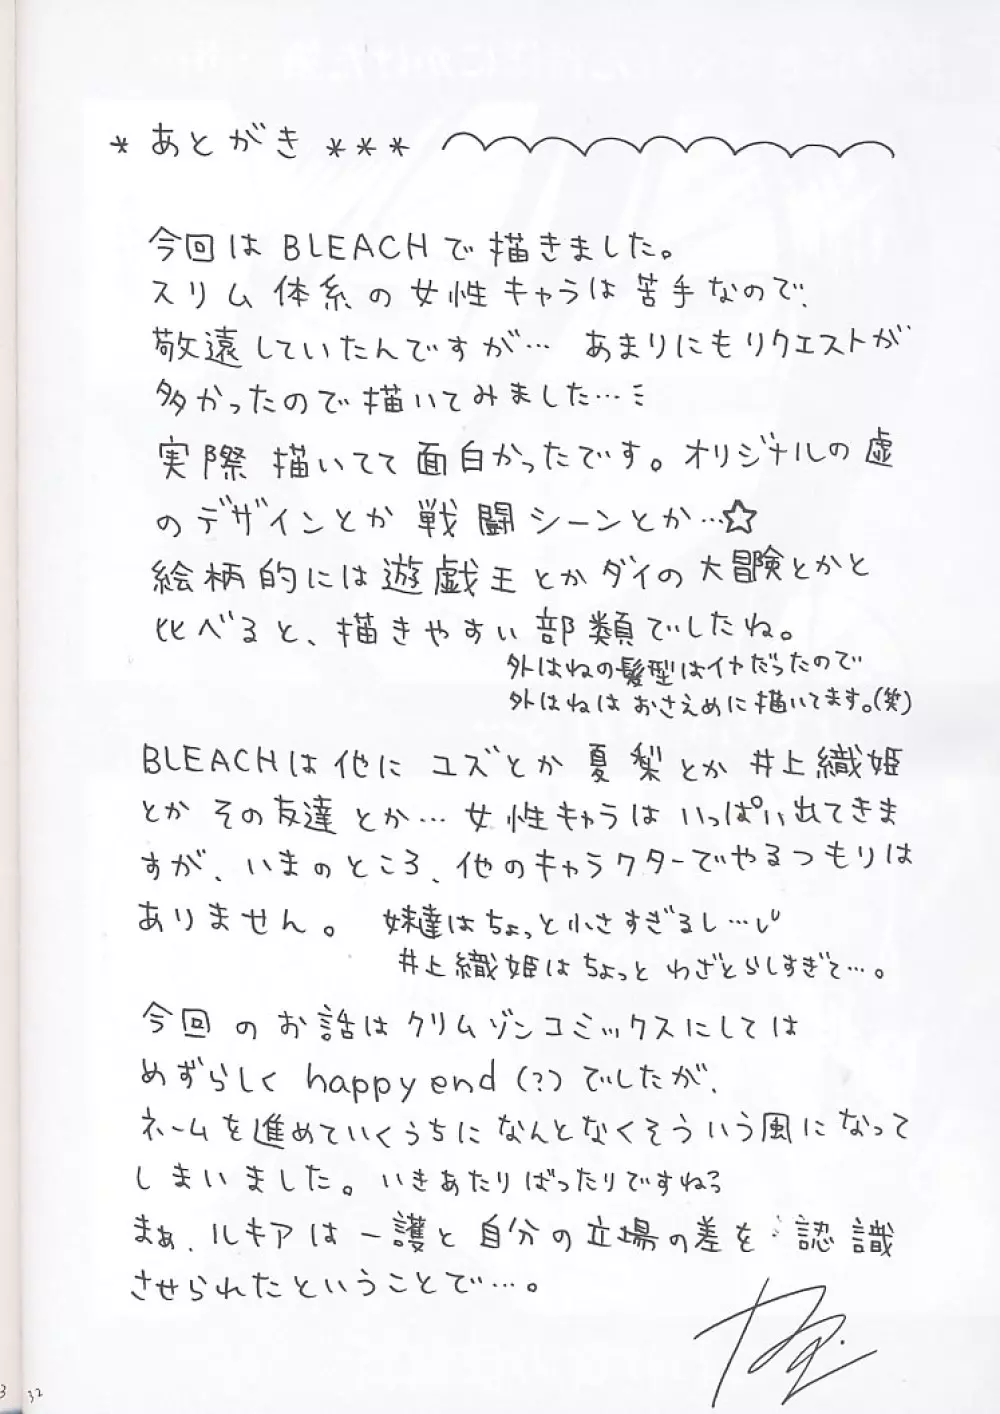 * あとがき ***
今回は BLEACHで描きました。
スリム体系の女性キャラは苦手なので、
敬遠していたんですが… あまりにもリクエストが
多かったので描いてみました…
実際描いてて面白かったです。オリジナルの虚
のデザインとか戦闘シーンとか…☆
絵柄的には遊戯王とかダイの大冒険とかと
比べると、描きやすい部類でしたね。
外はねの髪型はイヤだったので
外はねはおさえめに描いてます。(笑)
BLEACHは他に ユズとか 夏梨とか 井上織姫
とか その友達とか… 女性キャラは いっぱい出てきま
すが、いまのところ、他のキャラクターでやるつもりは
ありません。 妹達はちょっと小さすぎるし…
井上織姫はちょっと わざとらしすぎて…。
今回のお話はクリムゾンコミックスにしては
めずらしく happy end (?) でしたが、
ネームを進めていくうちになんとなくそういう風になって
しまいました。いきあたりばったりですねぇ
まぁ、ルキアは一護と自分の立場の差を認識
させられたということで…。
32